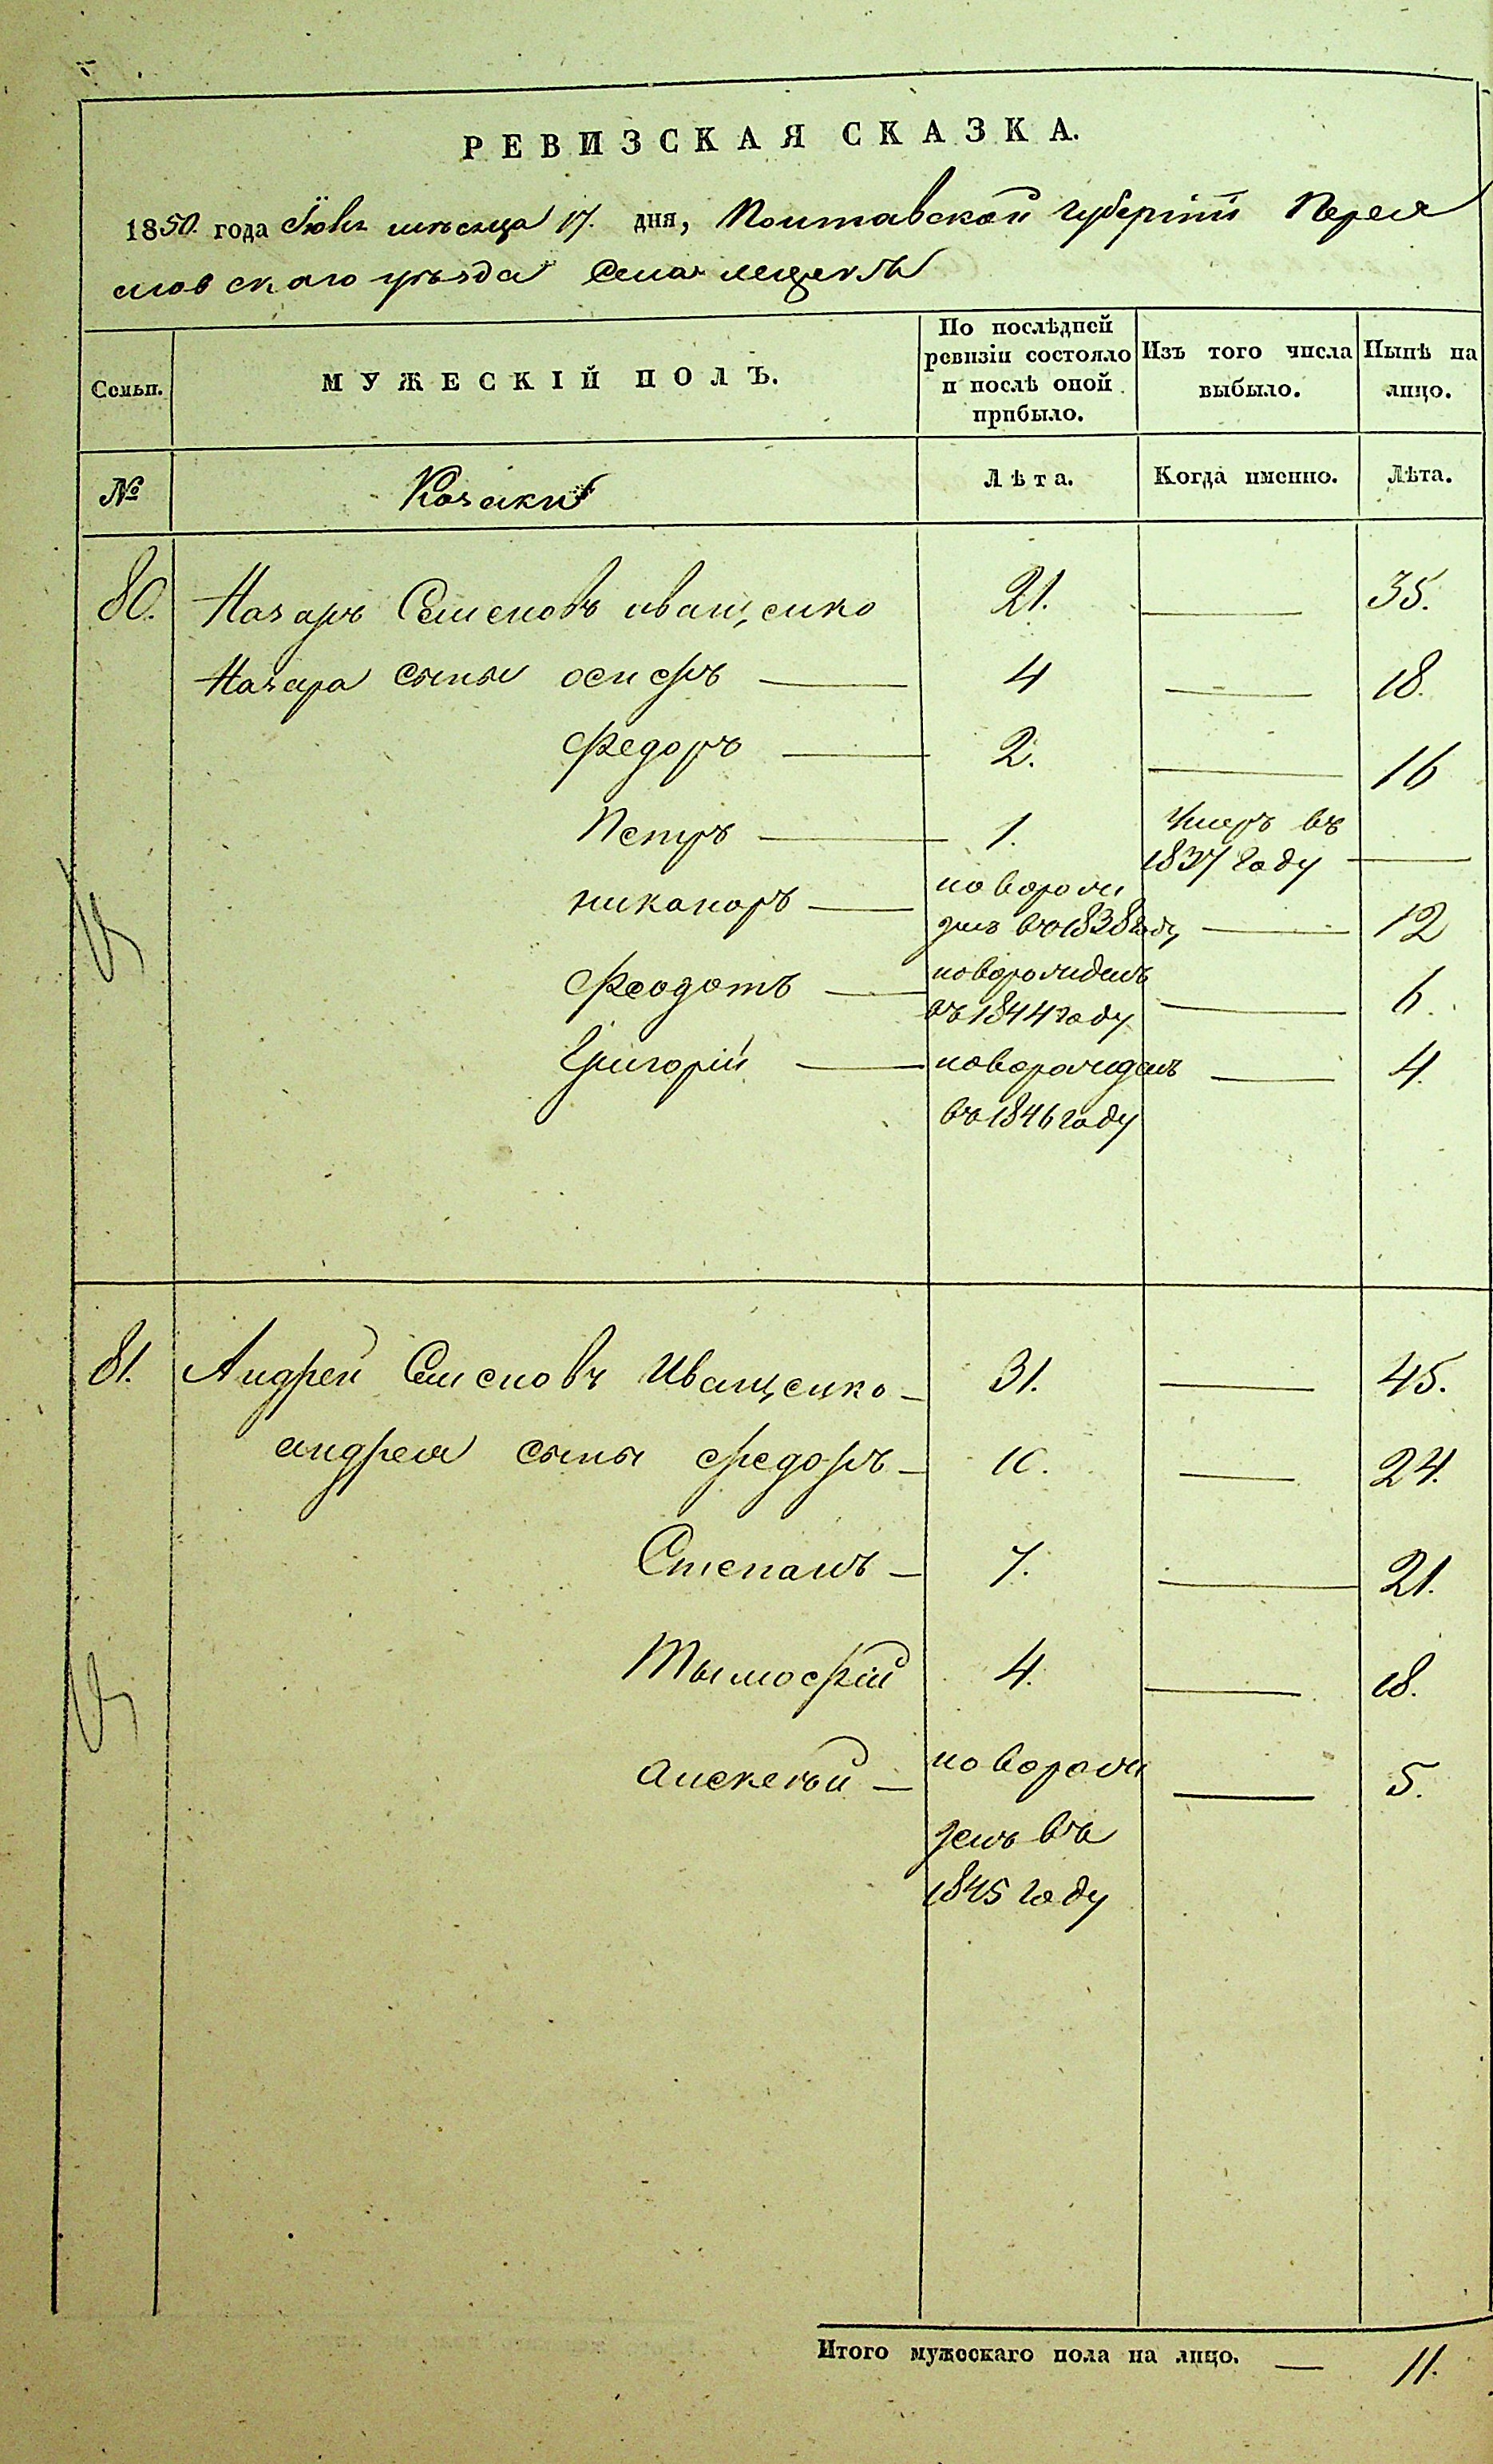 РЕВИЗСКАЯ СКАЗКА.
1850. года Іюня мѣсяца 17. дня, Полтавской губерніи Перея
словского уѣзда Села
Семьи. МУЖЕСКІЙ ПОЛЪ. По послѣдней ревизіи состояло и послѣ оной прибыло. Изъ того числа выбыло. Нынѣ на лицо.
№ Козаки Лѣта. Когда именно. Лѣта.
80. Назаръ Семеновъ иващенко 21. — 35.
Назара сыны осифъ — 4 — 18.
Федоръ — 2. — 16
Петръ — 1. Умеръ въ
1837 году —
никаноръ — новорож
денъ въ 1838 году — 12
Феодотъ — новорожденъ
въ 1844 году — 6.
Григорій — новорожденъ — 4.
въ 1846 году
81. Андрей Семеновъ Иващенко — 31. — 45.
андрея сыны федоръ — 10. — 24.
Степанъ — 7. — 21.
Тымофій 4. — 18.
алексѣй — новорож — 5.
денъ въ
1845 году
Итого мужескаго пола на лицо. — 11.